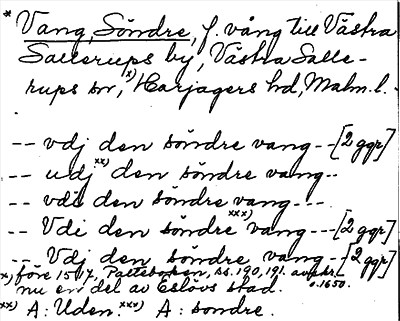 * Vang, Söndre, f. vång till Västra
Sallerups by, Västra Salle-
rups sn,x) Harjagers hd, Malm. l. -
-- vdj den söndre vang -- [2 ggr]
-- udjxx) den söndre vang --
-- vdi den söndre vang ---
-- Vdi den söndrexxx) vang --- [2 ggr]
-- Vdj den söndre vang -- [2 ggr]
x) före 1517, Palteboken, ss. 190, 191. avskr. o. 1650.
nu en del av Eslövs stad.
xx) A: Uden. xxx) A: sondre.